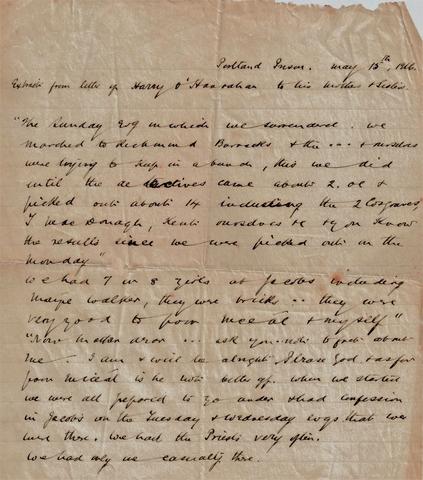 Portland Prison. May 15th, 1916.
Extracts from letter of Harry O'Hanrahan to his mother & sisters.
"The Sunday Evg in which we surrendered. we
marched to Richmond Barracks & the ... & ourselves
were trying to keep in a bunch, this we did
until the detectives came about 2. oc &
picked out about 14 including the 2 Cosgraves,
J. MacDonagh, Kent ourselves &c & you know
the results since we were picked out on the
Monday"
We had 7 or 8 girls at Jacobs including
Maire Walker, they were bricks .. they were
very good to poor Micéal & myself"
"Now mother dear ... ask you not to fret about
me. I am & will be alright Please God. & as for
poor Micéal is he not better off. when we started
we were all prepared to go under & had confession
in Jacobs on the Tuesday & Wednesday evgs that we
were there. We had the Priests very often.
We had only one casualty there.